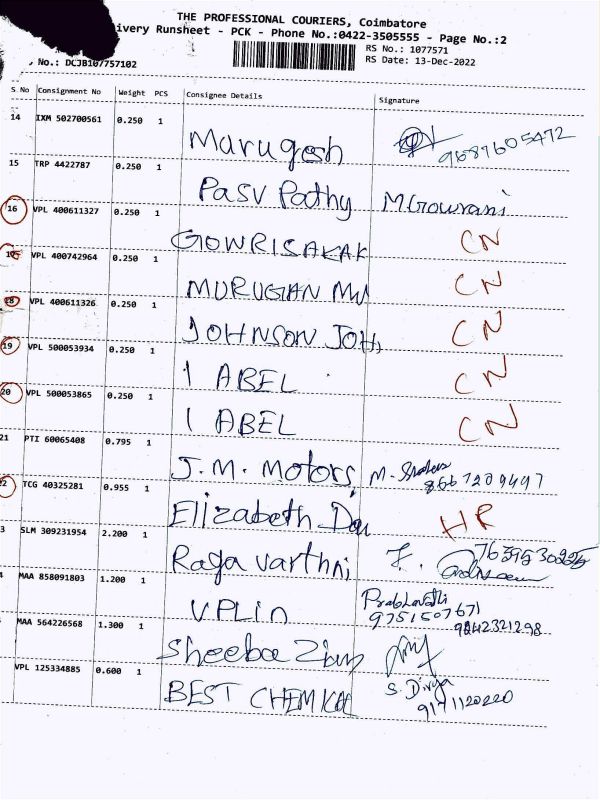 THE PROFESSIONAL COURIERS, Coimbatore
ivery Runsheet - PCK - Phone No.:0422-3505555 - Page No.:2
RS No.: 1077571
No.: DCJB107757102
RS Date: 13-Dec-2022
S No Consignment No Weight PCS Consignee Details Signature
14 IXM 502700561 0.250 1 Murugesh 9687605472
15 TRP 4422787 0.250 1 Pasv Pathy M Gowrani
16 VPL 400611327 0.250 1 GOWRISAKAK CN
VPL 400742964 0.250 1 MURUGAN MU CN
18 VPL 400611326 0.250 1 JOHNSON JOH CN
19 VPL 500053934 0.250 1 I ABEL CN
20 VPL 500053865 0.250 1 I ABEL CN
21 PTI 60065408 0.795 1 J.M. Motors, M.
8667209497
2 TCG 40325281 0.955 1 Elizabeth HR
3 SLM 309231954 2.200 1 Raga varthni
MAA 858091803 1.200 1 VPLin Prabhavathi
9751507671
9842321298
MAA 564226568 1.300 1 Sheeba
VPL 125334885 0.600 1 BEST CHEMICAL S. Divya
9171120220